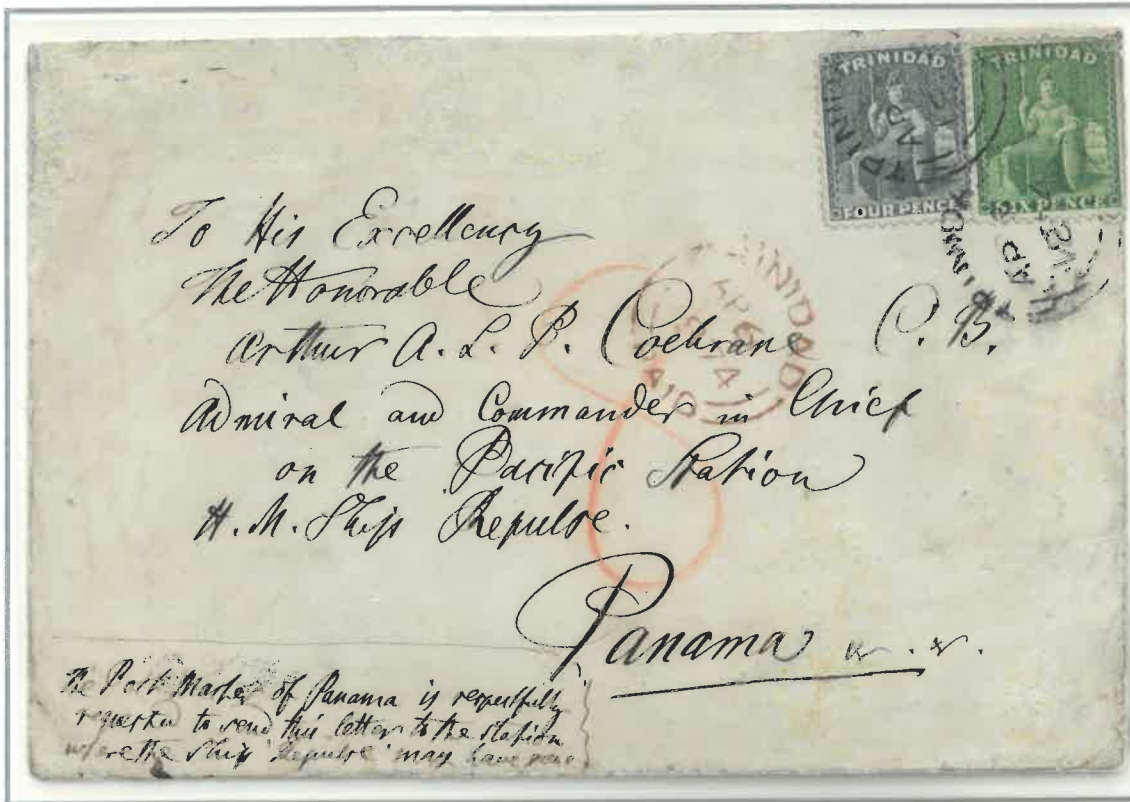 TRINIDAD TRINIDAD
FOUR PENCE SIX PENCE
To His Excellency
The Honorable
Arthur A. L. P. Cochrane C. B.
Admiral and Commander in Chief
on the Pacific Station
H. M. Ship Repulse.
Panama
TRINIDAD
AP 6
PAID
8
The Post Master of Panama is respectfully
requested to send this letter to the station
where the Ship 'Repulse' may have